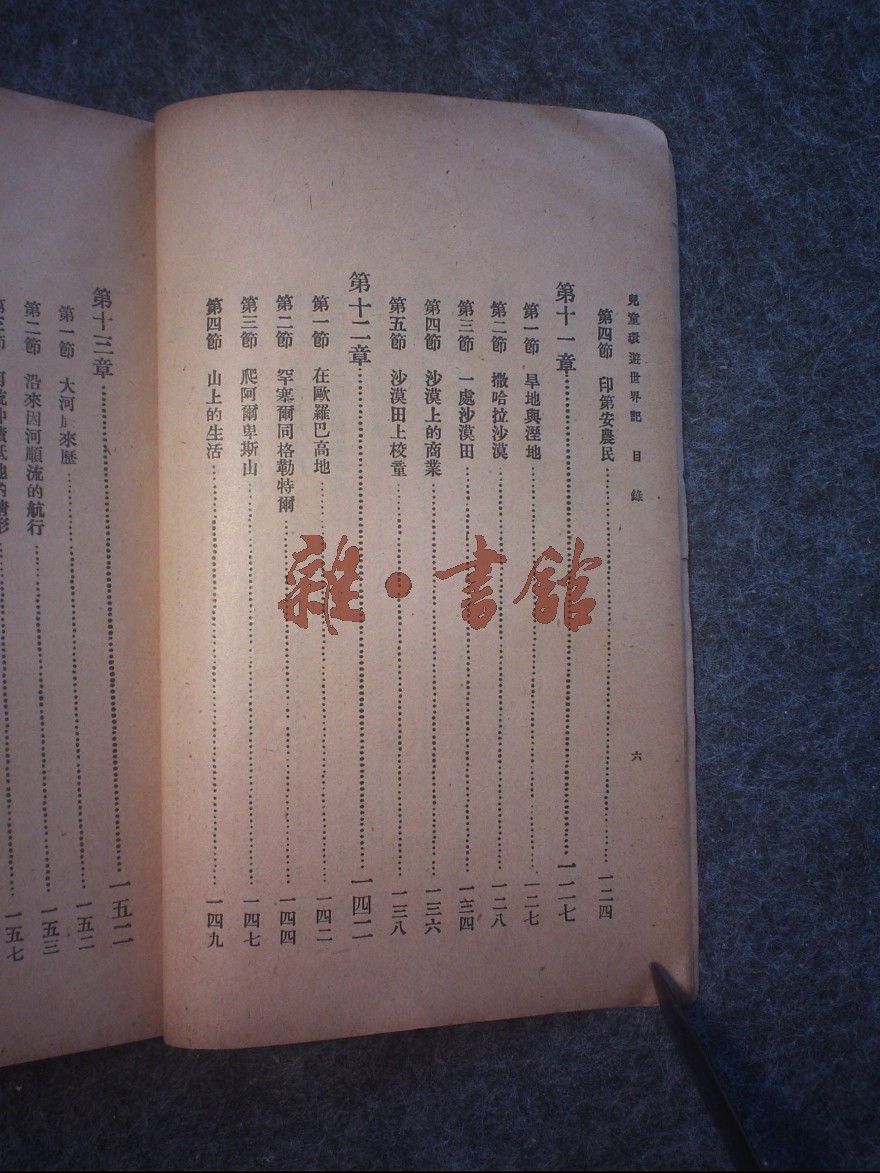 兒童環遊世界記 目錄 六
第四節 印第安農民 一二四
第十一章 一二七
第一節 旱地與溼地 一二七
第二節 撒哈拉沙漠 一二八
第三節 一處沙漠田 一三四
第四節 沙漠上的商業 一三六
第五節 沙漠田上校童 一三八
第十二章 一四二
第一節 在歐羅巴高地 一四二
第二節 罕塞爾同格勒特爾 一四四
第三節 爬阿爾卑斯山 一四七
第四節 山上的生活 一四九
第十三章 一五二
第一節 大河 來歷 一五二
第二節 沿來因河順流的航行 一五三
一五七
雜·書館